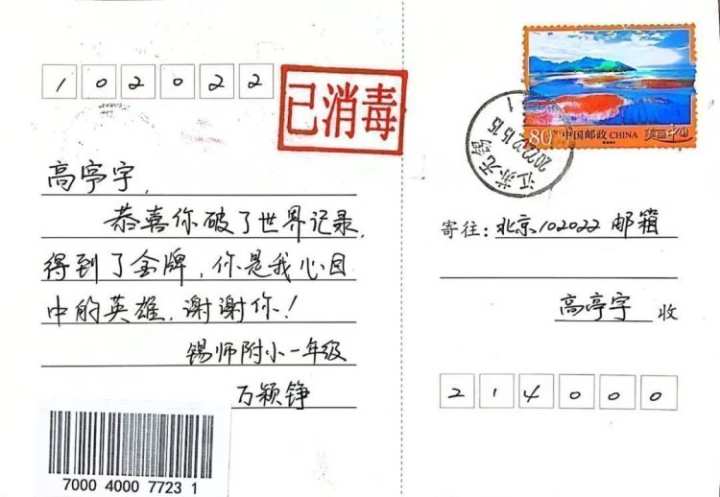 102022
已消毒
高亭宇,
恭喜你破了世界记录,
得到了金牌,你是我心目
中的英雄,谢谢你!
锡师附小一年级
万颖铮
7000 4000 7723 1
80分 中国邮政 CHINA 美丽中国
江苏无锡
2022.02.15.15
寄往:北京102022 邮箱
高亭宇 收
214000